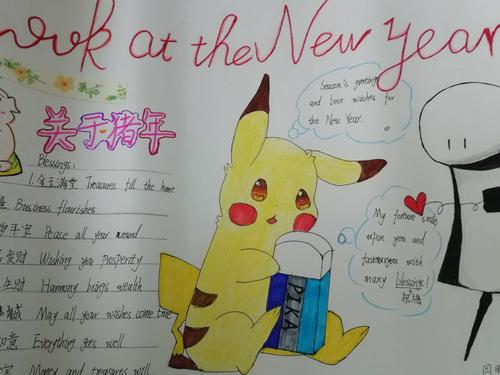 ook at the New Year
关于猪年
Blessings:
1. 金玉满堂 Treasures fill the home
Business flourishes
Peace all year round
发财 Wishing you prosperity
生财 Harmony brings wealth
May all your wishes come true
如意 Everything goes well
Money and treasures will
Season's greetings
and best wishes for
the New Year.
My fortune smile
upon you and
favour you with
many blessings!
PIKA